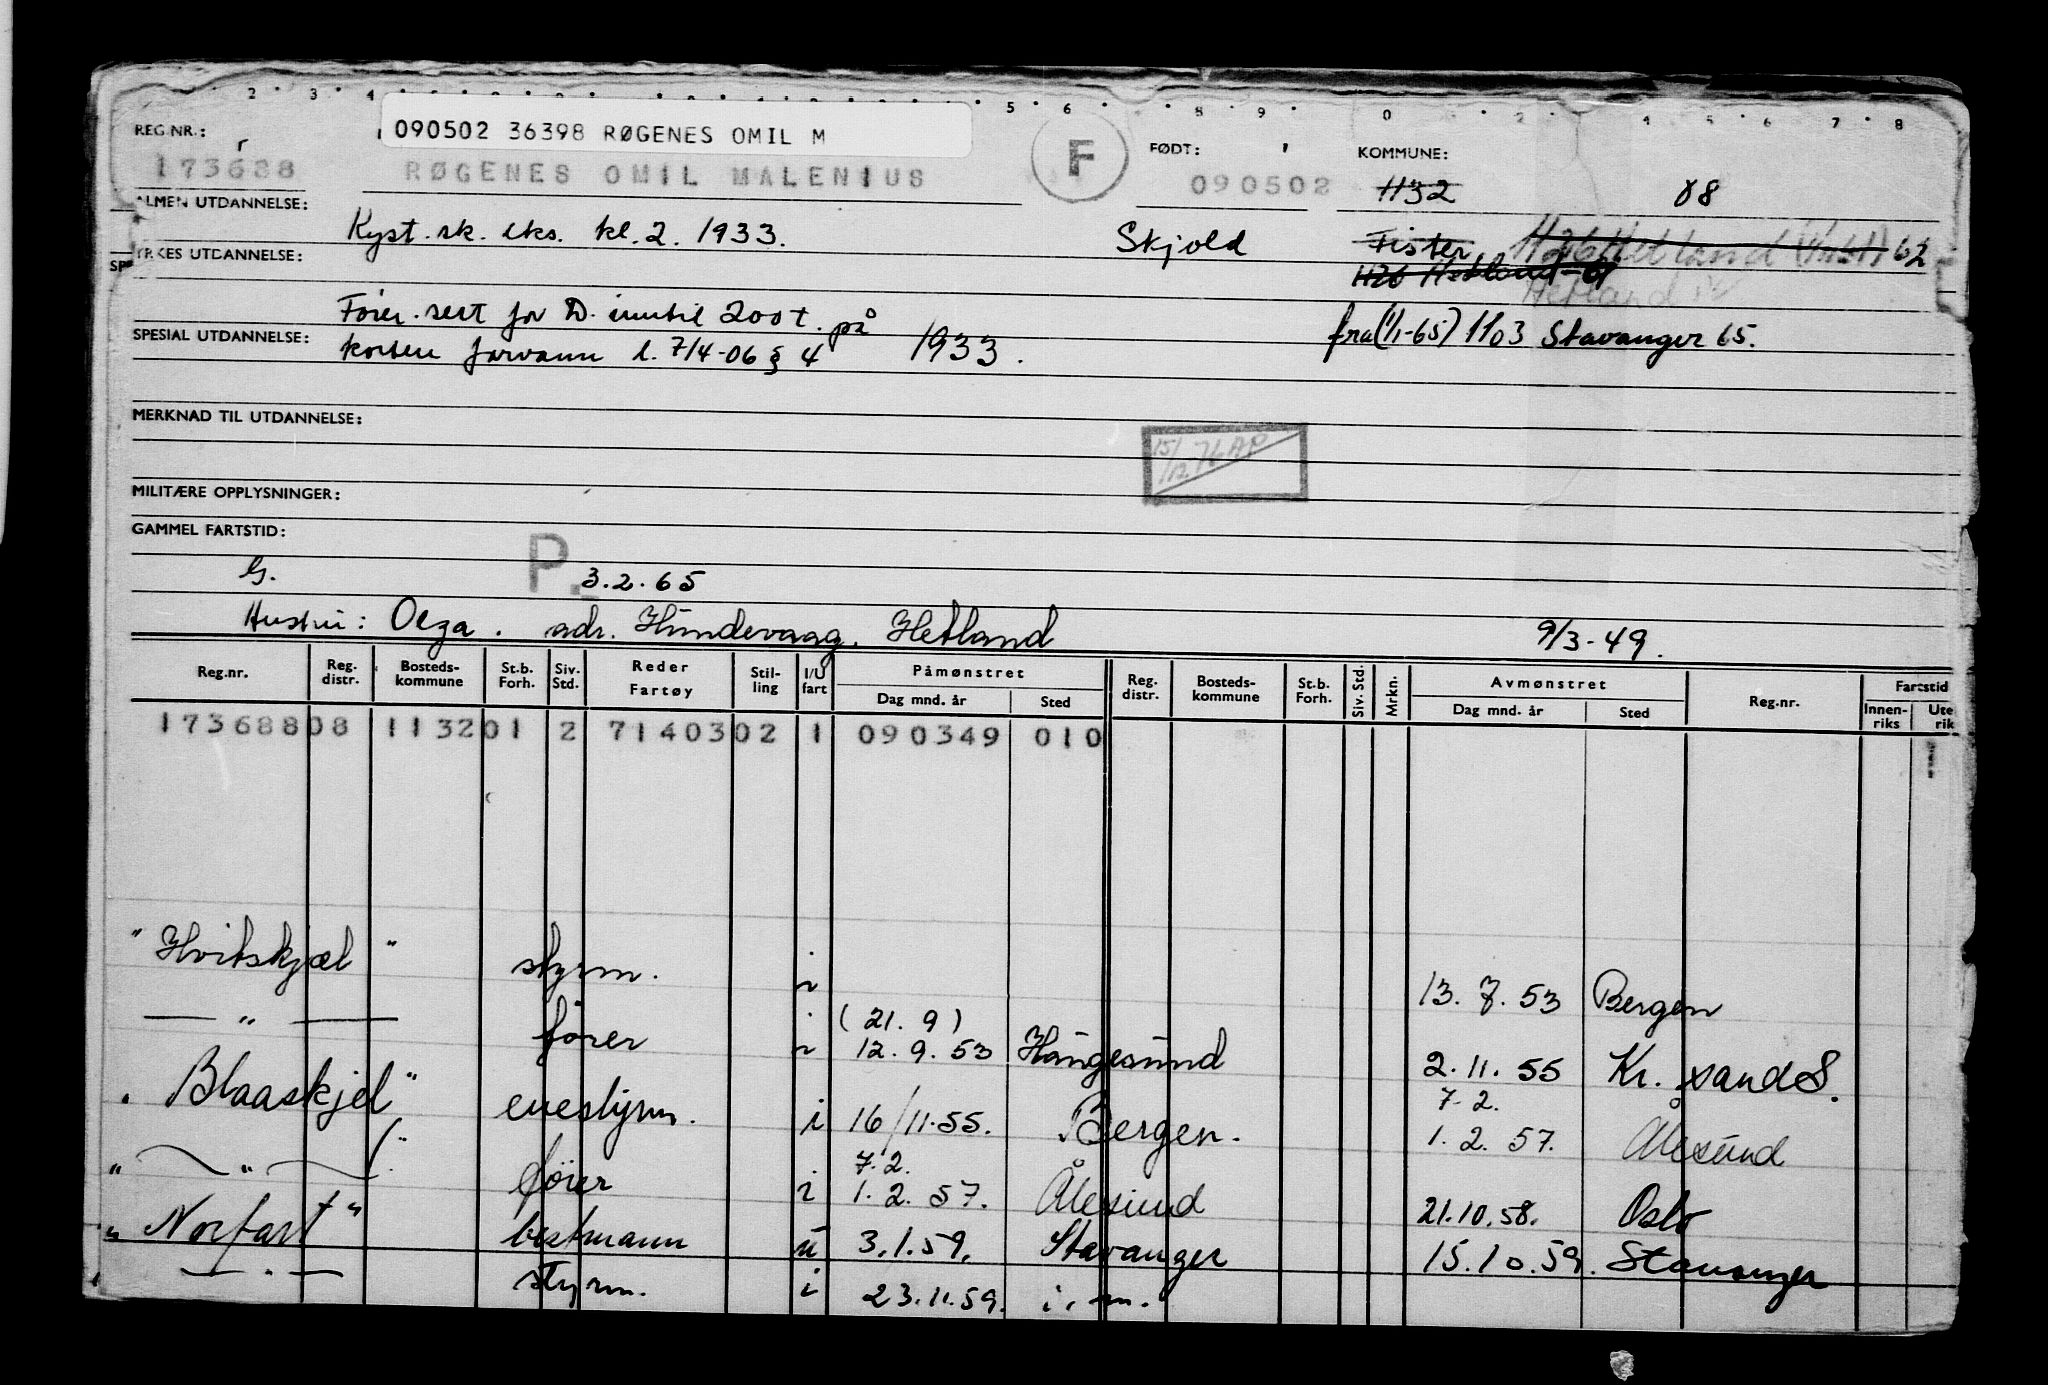 2 3 4 5 6 8 9 0 2 4 5 6 7 8
REG.NR.: 090502 36398 RØGENES OMIL M FØDT: KOMMUNE:
173688 RØGENES OMIL MALENIUS F 090502 1132 08
ALMEN UTDANNELSE: Kyst.sk. eks. kl. 2. 1933. Skjold Fister 62
YRKES UTDANNELSE: 1126 Hetland
Hetland
Fører.sert for D. inntil 200 t. på
SPESIAL UTDANNELSE: 1933. fra (1/1-65) 1103 Stavanger 65.
l. 7/4-06 § 4
MERKNAD TIL UTDANNELSE:
15/12 76 AP
MILITÆRE OPPLYSNINGER:
GAMMEL FARTSTID:
G. P. 3.2.65
Hustru: Olga. adr. Hundevaag. Hetland 9/3-49.
Reg.nr. Reg. distr. Bosteds-kommune St.b. Forh. Siv. Std. Reder Fartøy Stil-ling I/U fart Påmønstret Dag mnd. år Sted Reg. distr. Bosteds-kommune St.b. Forh. Siv. Std. Mrkn. Avmønstret Dag mnd. år Sted Reg.nr. Fartstid Innen-riks Ute rik
173688 08 1132 01 2 71403 02 1 090349 010
"Hvitskjæl" styrm. i 13.7.53 Bergen
— " — fører i (21.9) 12.9.53 Haugesund 2.11.55 Kr.sand S.
"Blaaskjel" enestyrm. i 16/11.55. Bergen. 7.2. 1.2.57. Ålesund
— " — fører i 7.2. 1.2.57. Ålesund 21.10.58. Oslo
"Norfart" bestmann u 3.1.59. Stavanger 15.10.59. Stavanger
— " — styrm. i 23.11.59.